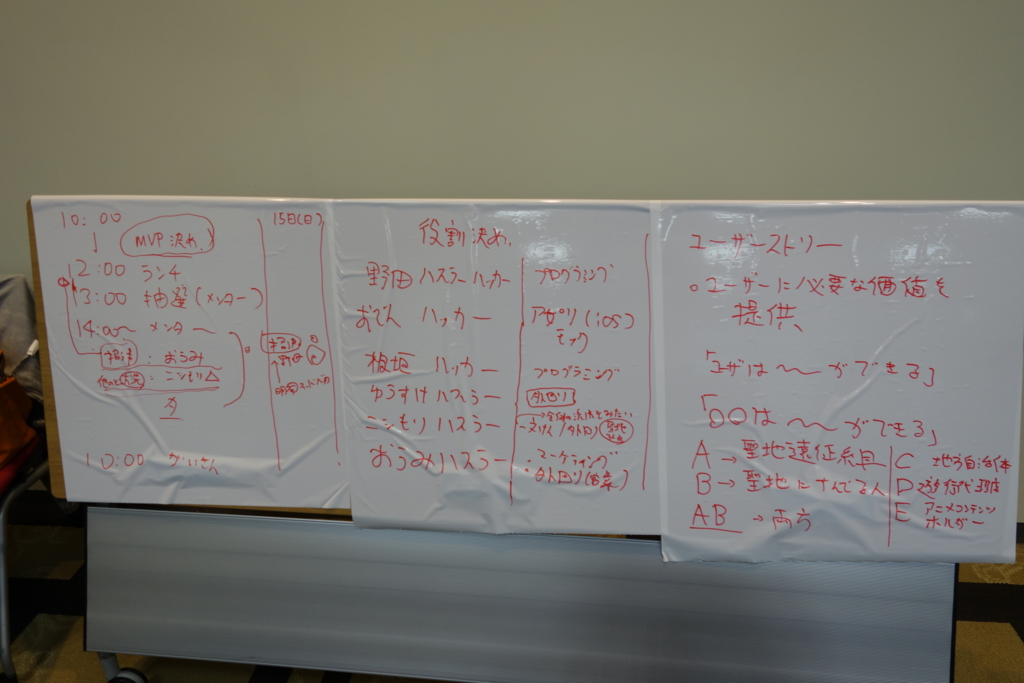 10:00
↓ MVP決め
12:00 ランチ
13:00 抽選(メンター)
14:00〜 メンター
:おうみ
:こンもり△
夕
10:00 かいさん
15日(日)
役割決め
野田 ハスラーハッカー プログラミング
おでん ハッカー アプリ(iOS)
モック
板垣 ハッカー プログラミング
ゆうすけ ハスラー 外回り
こンもり ハスラー
おうみ ハスラー ・マーケティング
・外回り(営業)
ユーザーストーリー
○ユーザーに必要な価値を
提供
「ユーザは〜ができる」
「○○は〜ができる」
A→聖地遠征系
B→聖地にすんでる人
AB→両方
C 地方自治体
D 旅行代理店
E アニメコンテンツ
ホルダー